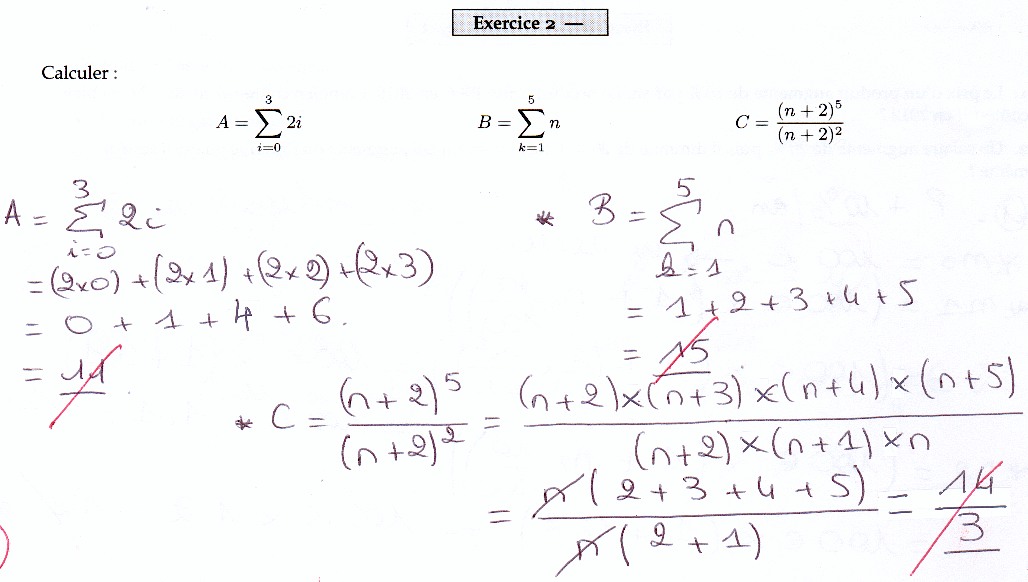 Exercice 2 —
Calculer :
A = ∑_{i=0}^{3} 2i B = ∑_{k=1}^{5} n C = (n + 2)^5 / (n + 2)^2
A = ∑_{i=0}^{3} 2i
= (2×0) + (2×1) + (2×2) + (2×3)
= 0 + 1 + 4 + 6.
= 11
* B = ∑_{k=1}^{5} n
= 1 + 2 + 3 + 4 + 5
= 15
* C = (n + 2)^5 / (n + 2)^2 = (n+2)×(n+3)×(n+4)×(n+5) / (n+2)×(n+1)×n
= n(2 + 3 + 4 + 5) / n(2 + 1) = 14 / 3